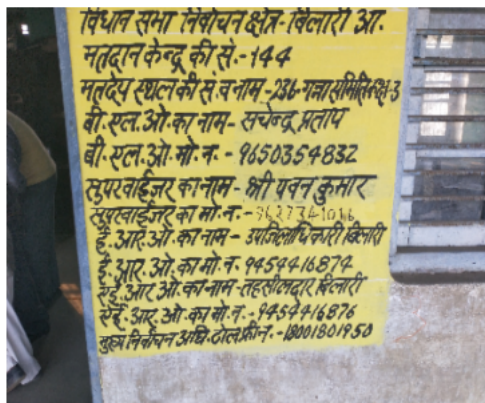 विधान सभा निर्वाचन क्षेत्र- बिलारी आ.
मतदान केन्द्र की सं.- 144
मतदेय स्थल की सं. व नाम - 236- गन्ना समिति कक्ष-3
बी.एल.ओ. का नाम - सचेन्द्र प्रताप
बी.एल.ओ. मो. न. - 9650354832
सुपरवाईजर का नाम - श्री पवन कुमार
सुपरवाईजर का मो. न. -
ई.आर.ओ. का नाम - उपजिलाधिकारी बिलारी
ई.आर.ओ. का मो. न. 9454416874
एई.आर.ओ. का नाम - तहसीलदार बिलारी
एई.आर.ओ. का मो. न. - 9454416876
मुख्य निर्वाचन अधि. टोल फ्री न. - 18001801950